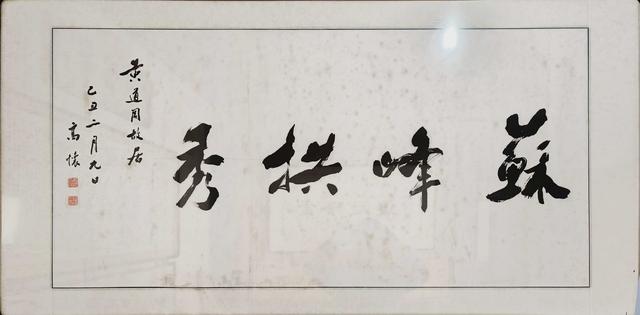 蘇峰拱秀
黄道周故居
己丑二月九日
高懷